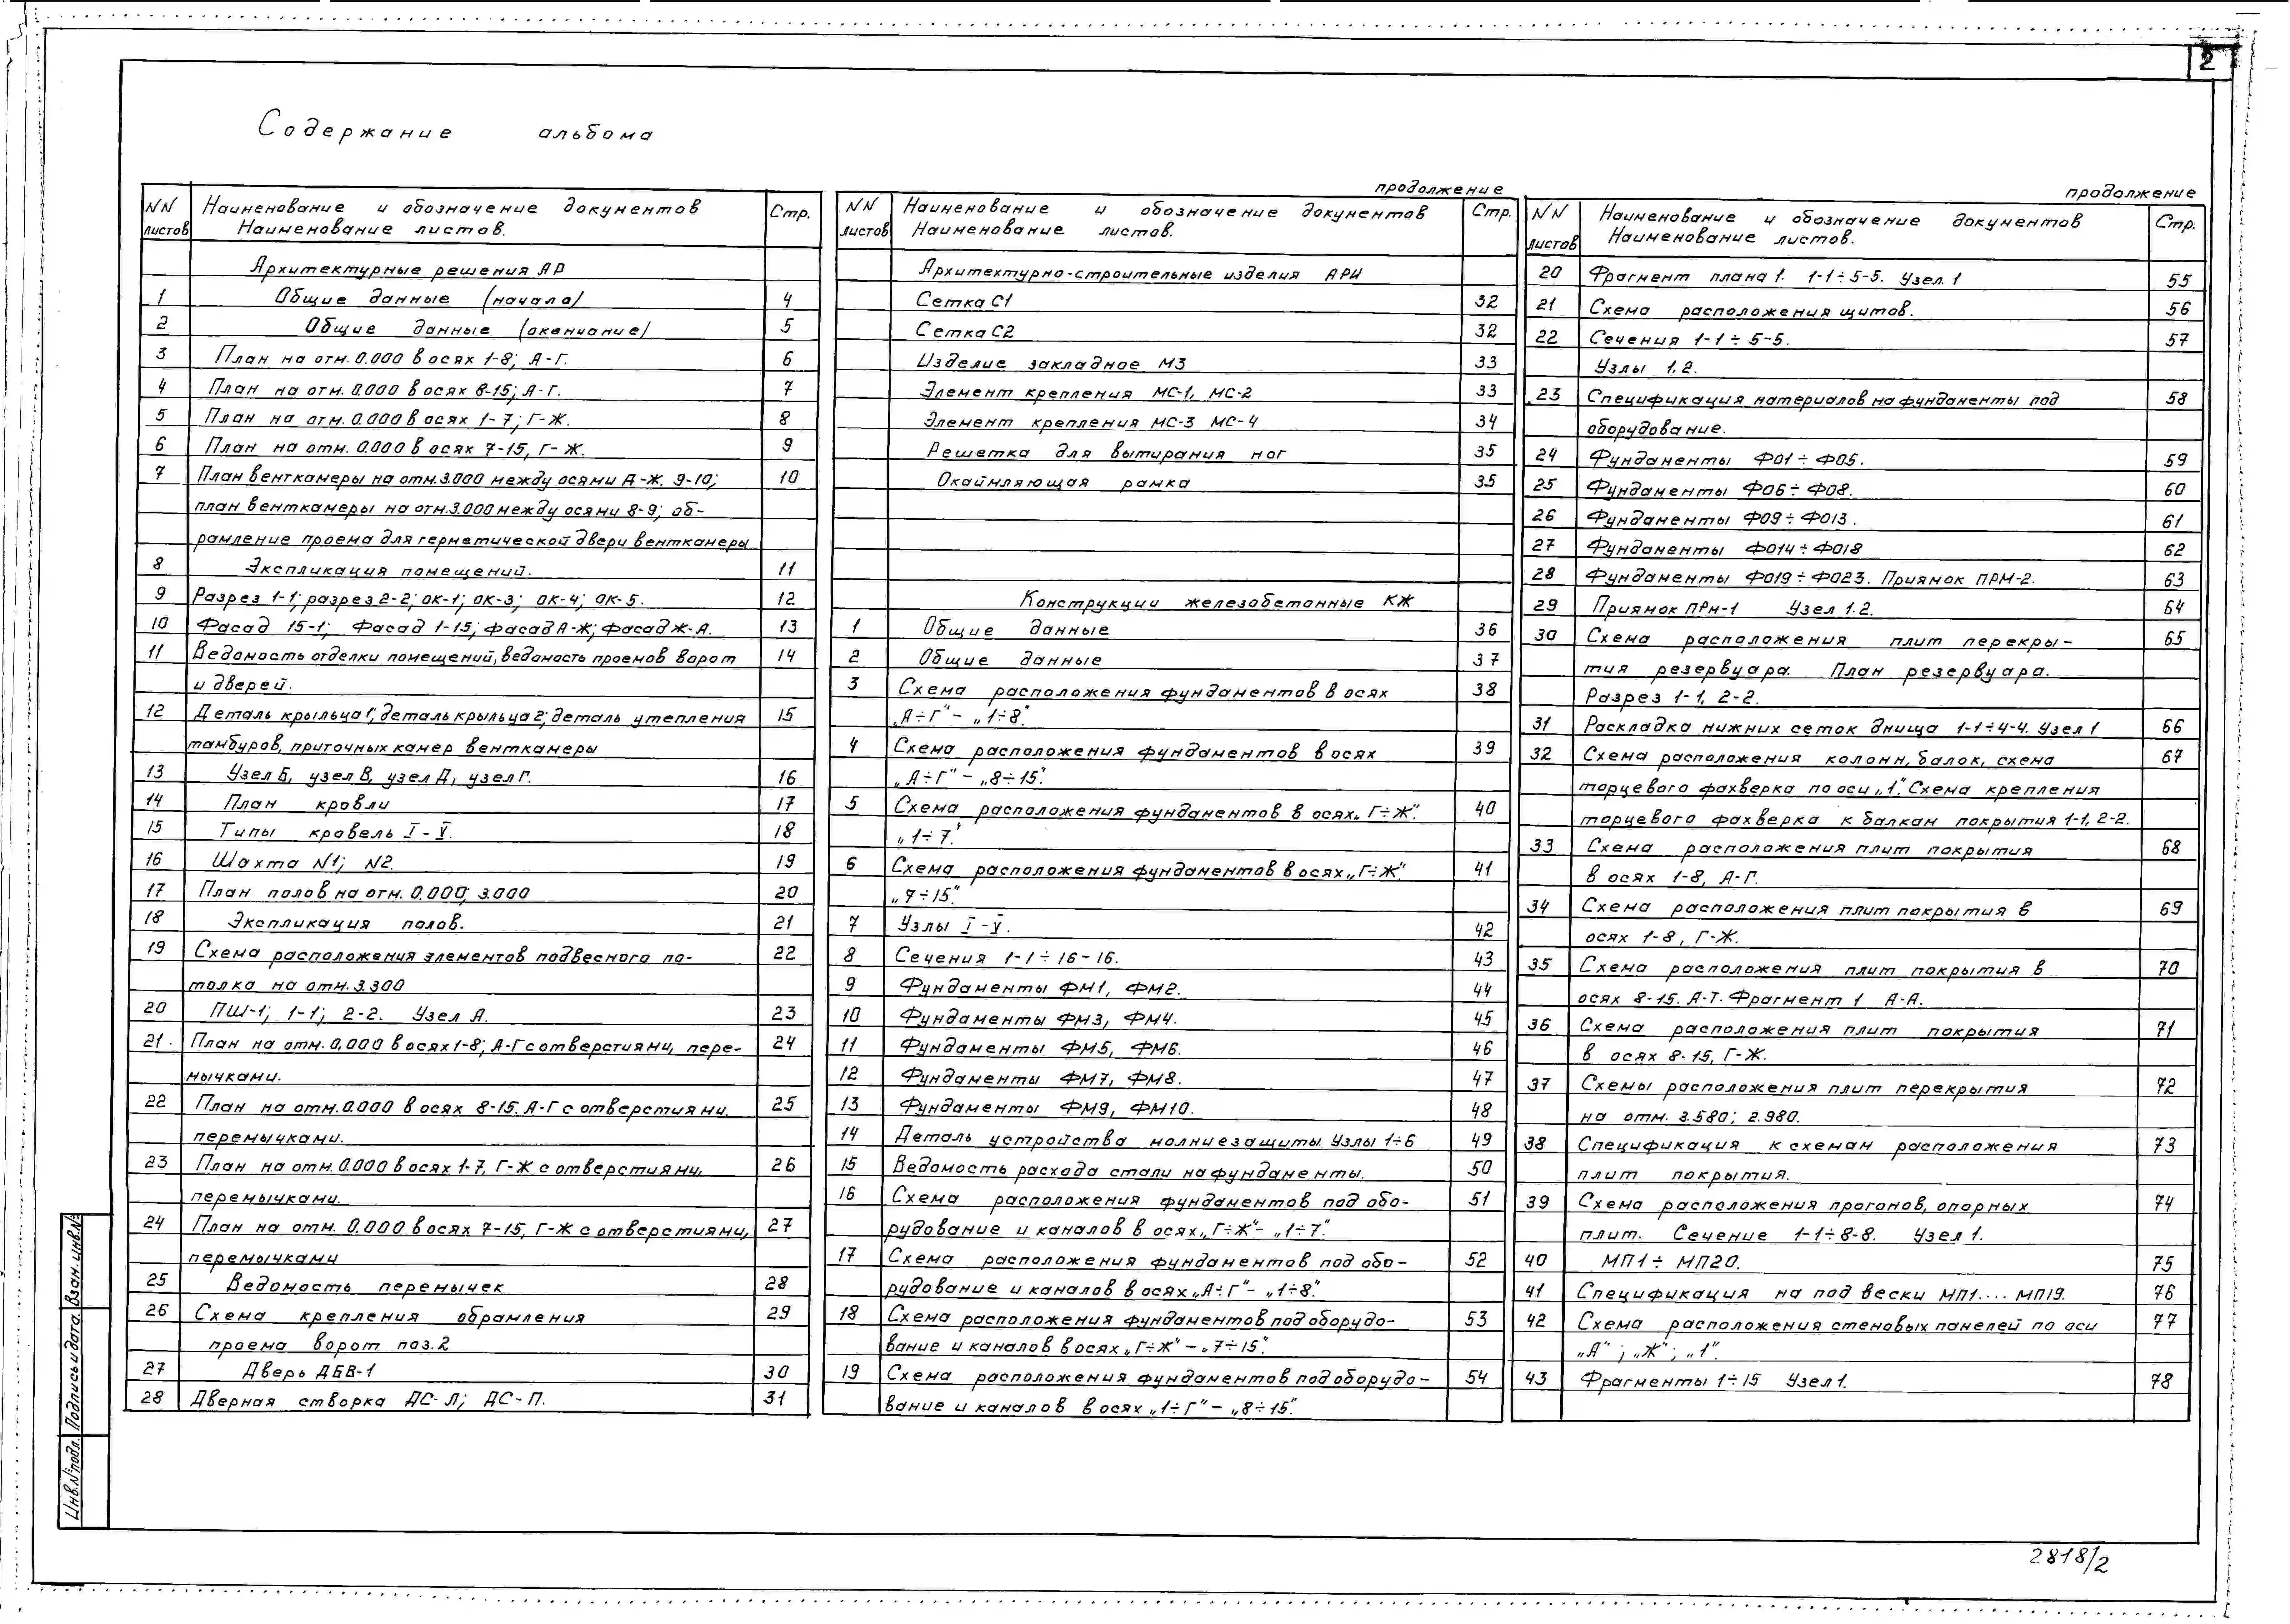 2
Содержание альбома
NN листов Наименование и обозначение документов Наименование листов. Стр.
Архитектурные решения АР
1 Общие данные (начало) 4
2 Общие данные (окончание) 5
3 План на отм. 0.000 в осях 1-8; А-Г. 6
4 План на отм. 0.000 в осях 8-15; А-Г. 7
5 План на отм. 0.000 в осях 1-7; Г-Ж. 8
6 План на отм. 0.000 в осях 7-15, Г-Ж. 9
7 План венткамеры на отм. 3.000 между осями Д-Ж. 9-10; 10
план венткамеры на отм. 3.000 между осями 8-9; об-
рамление проема для герметической двери венткамеры
8 Экспликация помещений. 11
9 Разрез 1-1; разрез 2-2; ОК-1; ОК-3; ОК-4; ОК-5. 12
10 Фасад 15-1; Фасад 1-15; фасад А-Ж; фасад Ж-А. 13
11 Ведомость отделки помещений, ведомость проемов ворот 14
и дверей.
12 Деталь крыльца 1; деталь крыльца 2; деталь утепления 15
тамбуров, приточных камер венткамеры
13 Узел Б, узел В, узел Д, узел Г. 16
14 План кровли 17
15 Типы кровель I-V. 18
16 Шахта N1; N2. 19
17 План полов на отм. 0.000; 3.000 20
18 Экспликация полов. 21
19 Схема расположения элементов подвесного по- 22
толка на отм. 3.300
20 ПШ-1; 1-1; 2-2. Узел А. 23
21. План на отм. 0,000 в осях 1-8; А-Г с отверстиями, пере- 24
мычками.
22 План на отм. 0.000 в осях 8-15. А-Г с отверстиями, 25
перемычками.
23 План на отм. 0.000 в осях 1-7, Г-Ж с отверстиями, 26
перемычками.
24 План на отм. 0.000 в осях 7-15, Г-Ж с отверстиями, 27
перемычками
25 Ведомость перемычек 28
26 Схема крепления обрамления 29
проема ворот поз. 2
27 Дверь ДБВ-1 30
28 Дверная створка ДС-Л; ДС-П. 31
продолжение
NN листов Наименование и обозначение документов Наименование листов. Стр.
Архитектурно-строительные изделия АРИ
Сетка С1 32
Сетка С2 32
Изделие закладное М3 33
Элемент крепления МС-1, МС-2 33
Элемент крепления МС-3 МС-4 34
Решетка для вытирания ног 35
Окаймляющая рамка 35
Конструкции железобетонные КЖ
1 Общие данные 36
2 Общие данные 37
3 Схема расположения фундаментов в осях 38
„А÷Г" - „1÷8".
4 Схема расположения фундаментов в осях 39
„А÷Г" - „8÷15".
5 Схема расположения фундаментов в осях „Г÷Ж". 40
„1÷7".
6 Схема расположения фундаментов в осях „Г÷Ж". 41
„7÷15".
7 Узлы I-V. 42
8 Сечения 1-1÷16-16. 43
9 Фундаменты ФМ1, ФМ2. 44
10 Фундаменты ФМ3, ФМ4. 45
11 Фундаменты ФМ5, ФМ6. 46
12 Фундаменты ФМ7, ФМ8. 47
13 Фундаменты ФМ9, ФМ10. 48
14 Деталь устройства молниезащиты. Узлы 1÷6 49
15 Ведомость расхода стали на фундаменты. 50
16 Схема расположения фундаментов под обо- 51
рудование и каналов в осях „Г÷Ж" - „1÷7".
17 Схема расположения фундаментов под обо- 52
рудование и каналов в осях „А÷Г" - „1÷8".
18 Схема расположения фундаментов под оборудо- 53
вание и каналов в осях „Г÷Ж" - „7÷15".
19 Схема расположения фундаментов под оборудо- 54
вание и каналов в осях „1÷Г" - „8÷15".
продолжение
NN листов Наименование и обозначение документов Наименование листов. Стр.
20 Фрагмент плана 1. 1-1÷5-5. Узел. 1 55
21 Схема расположения щитов. 56
22 Сечения 1-1÷5-5. 57
Узлы 1.2.
23 Спецификация материалов на фундаменты под 58
оборудование.
24 Фундаменты Ф01÷Ф05. 59
25 Фундаменты Ф06÷Ф08. 60
26 Фундаменты Ф09÷Ф013. 61
27 Фундаменты Ф014÷Ф018 62
28 Фундаменты Ф019÷Ф023. Приямок ПРМ-2. 63
29 Приямок ПРМ-1 Узел 1.2. 64
30 Схема расположения плит перекры- 65
тия резервуара. План резервуара.
Разрез 1-1, 2-2.
31 Раскладка нижних сеток днища 1-1÷4-4. Узел 1 66
32 Схема расположения колонн, балок, схема 67
торцевого фахверка по оси „1". Схема крепления
торцевого фахверка к балкам покрытия 1-1, 2-2.
33 Схема расположения плит покрытия 68
в осях 1-8, А-Г.
34 Схема расположения плит покрытия в 69
осях 1-8, Г-Ж.
35 Схема расположения плит покрытия в 70
осях 8-15. А-Т. Фрагмент 1 А-А.
36 Схема расположения плит покрытия 71
в осях 8-15, Г-Ж.
37 Схемы расположения плит перекрытия 72
на отм. 3.580; 2.980.
38 Спецификация к схемам расположения 73
плит покрытия.
39 Схема расположения прогонов, опорных 74
плит. Сечение 1-1÷8-8. Узел 1.
40 МП1÷МП20. 75
41 Спецификация на подвески МП1....МП19. 76
42 Схема расположения стеновых панелей по оси 77
„А"; „Ж"; „1".
43 Фрагменты 1÷15 Узел 1. 78
Инв.№подл. Подпись и дата. Взан. инв.№
2818/2